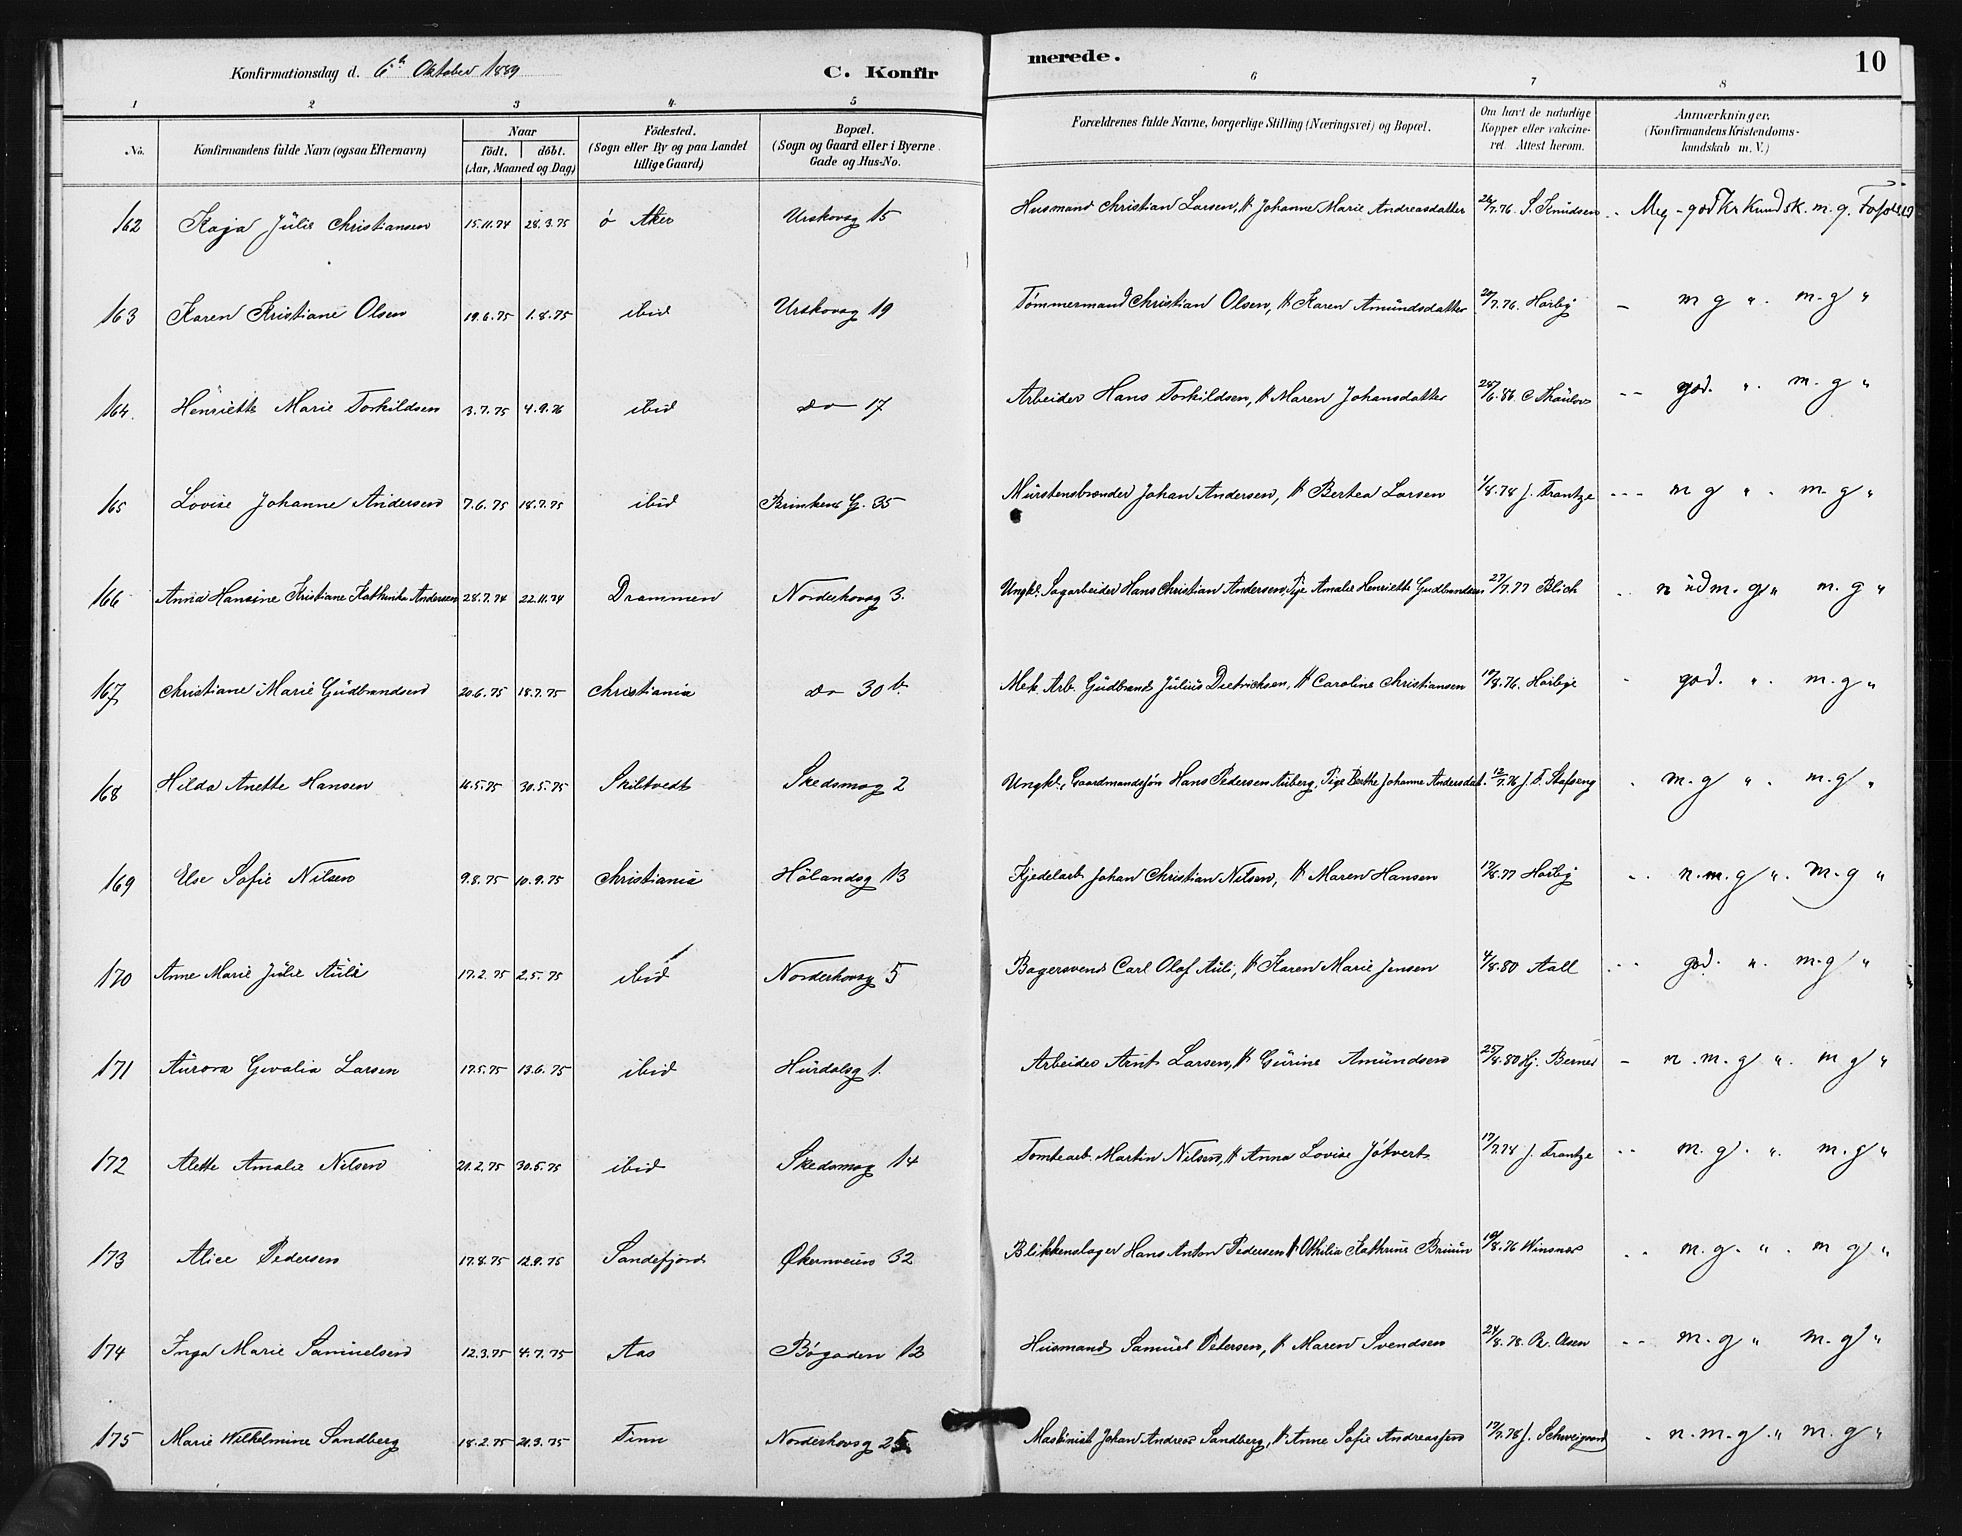 Konfirmationsdag d. 6te Oktober 1889 C. Konfirmerede. 10
1 2 3 4. 5 6 7 8
No. Konfirmandens fulde Navn (ogsaa Efternavn) Naar födt. döbt. (Aar, Maaned og Dag) Födested. (Sogn eller By og paa Landet tillige Gaard) Bopæl. (Sogn og Gaard eller i Byerne Gade og Hus-No. Forældrenes fulde Navne, borgerlige Stilling (Næringsvei) og Bopæl. Om havt de naturlige Kopper eller vakcineret. Attest herom. Anmærkninger. (Konfirmandens Kristendomskundskab m. V.)
162 Kaja Julie Christiansen 15.11.74 28.3.75 ö Aker Urskovsg 15 Husmand Christian Larsen, & Johanne Marie Andreasdatter 24/7.76. S. Knudsen Meg god Kr Kundsk. m. g. Forhold
163 Karen Kristiane Olsen 19.6.75 1.8.75 ibid Urskovsg 19 Tømmermand Christian Olsen, & Karen Amundsdatter 20/7.76. Hørbye m g " m. g "
164. Henriette Marie Torkildsen 3.7.75 4.9.76 ibid do 17 Arbeider Hans Torkildsen, & Maren Johansdatter 28/6.86. C Thaulow god. " m. g "
165 Lovise Johanne Andersen 7.6.75 18.7.75 ibid Brinkens G. 35 Murstensbrænder Johan Andersen, & Bertea Larsen 1/8.78 J. Frantze m g " m. g "
166 Anna Hansine Kristiane Kathinka Andersen 28.7.74 22.11.74 Drammen Norderhovsg 3. Ungk. Sagarbeider Hans Christian Andersen, Pige Amalie Henriette Gudbrandsen 27/7.77 Blich n ud m. g " m. g "
167 Christiane Marie Gudbrandsen 20.6.75 18.7.75 Christiania do 30 b Mek. Arb. Gudbrand Julius Diedrichsen, & Caroline Christiansen 19/8.76. Hørbye god. " m. g "
168 Hilda Anette Hansen 16.5.75 30.5.75 Skiltvedt Skedsmog 2 Ungk., Gaardmandssøn Hans Pedersen Auberg, Pige Berthe Johanne Andersdat. 12/7.76 J. F. Stafseng m. g " m. g "
169 Else Sofie Nilsen 9.8.75 10.9.75 Christiania Hölandsg 13 Kjedelarb Johan Christian Nilsen, & Maren Hansen 17/8.77 Hørbye n. m. g " m. g "
170 Anne Marie Julie Auli 17.2.75 2.5.75 ibid Norderhovsg 5 Bagersvend Carl Olaf Auli, & Karen Marie Jensen 4/8.80 Aall god. " m. g "
171 Aurora Gevalia Larsen 17.5.75 13.6.75 ibid Hurdalsg 1. Arbeider Arnt Larsen, & Gurine Amundsen 25/8.80 Hj. Berner n. m. g " m g "
172 Alette Amalie Nilsen 21.2.75 30.5.75 ibid Skedsmog 14 Tomtearb. Martin Nilsen, & Anna Lovise Jótvert 17/7.78 J. Frantze m. g. " m. g "
173 Alice Pedersen 17.8.75 12.9.75 Sandefjord Økernveien 32 Blikkenslager Hans Anton Pedersen & Othilia Kathrine Bruun 19/8.76 Winsnes m. g. " m g "
174 Inga Marie Samuelsen 12.3.75 4.7.75 Aas Bøgaden 13 Husmand Samuel Petersen, & Maren Svendsen 24/8.78. R. Olsen m. g " m. g "
175 Marie Wilhelmine Sandberg 18.2.75 21.3.75 Tinn Norderhovsg 25 Maskinist Johan Andreas Sandberg, & Anne Sofie Andreassen 17/7.78 J. Schweigaard n. m. g " m. g "